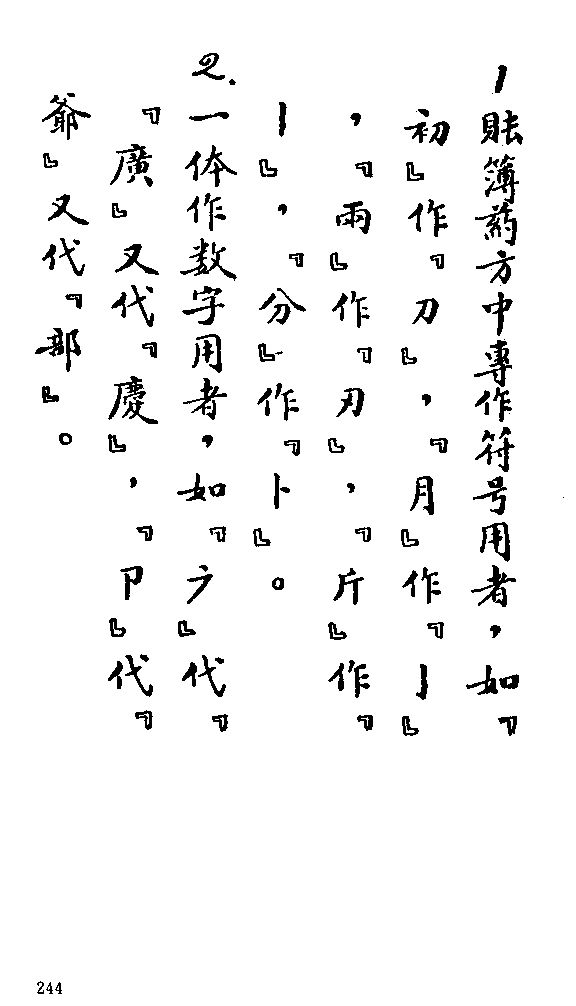 1 賬簿葯方中專作符号用者，如『
初』作『刀』，『月』作『亅』
，『兩』作『刃』，『斤』作『
丨』，『分』作『卜』。
2. 一体作数字用者，如『广』代『
『廣』又代『慶』，『卩』代『
爺』又代『部』。
244